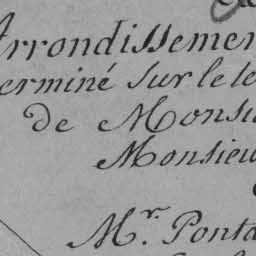 Arrondissemen
erminé sur le te
de Monsi
Monsieu
Mr. Ponta